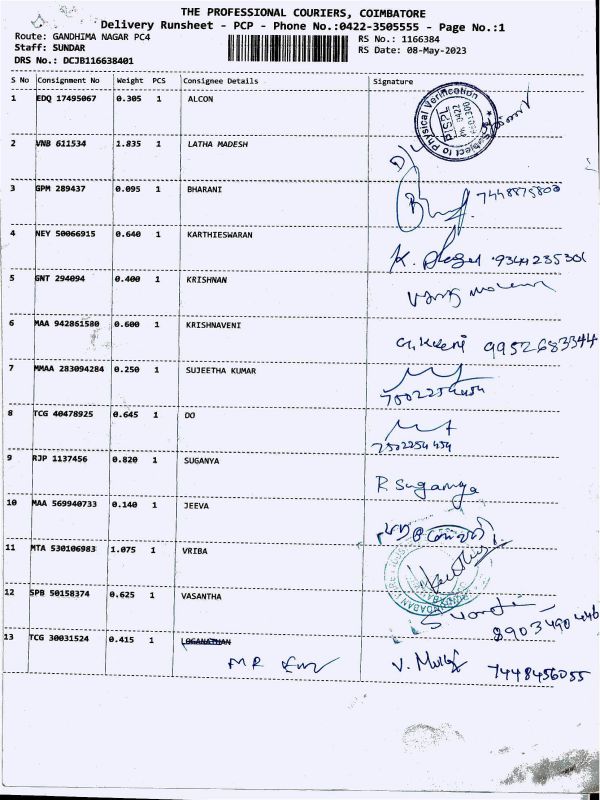 THE PROFESSIONAL COURIERS, COIMBATORE
Delivery Runsheet - PCP - Phone No.:0422-3505555 - Page No.:1
Route: GANDHIMA NAGAR PC4
RS No.: 1166384
Staff: SUNDAR
RS Date: 08-May-2023
DRS No.: DCJB116638401
S No Consignment No Weight PCS Consignee Details Signature
1 EDQ 17495067 0.305 1 ALCON
Subject to Physical Verification
2 VNB 611534 1.835 1 LATHA MADESH
3 GPM 289437 0.095 1 BHARANI
7448875800
4 NEY 50066915 0.640 1 KARTHIESWARAN
K. 9344285301
5 GNT 294094 0.400 1 KRISHNAN
6 MAA 942861580 0.600 1 KRISHNAVENI
9952683344
7 MMAA 283094284 0.250 1 SUJEETHA KUMAR
7502254454
8 TCG 40478925 0.645 1 DO
7502254454
9 RJP 1137456 0.820 1 SUGANYA
R. Suganya
10 MAA 569940733 0.140 1 JEEVA
11 MTA 530106983 1.075 1 VRIBA
12 SPB 50158374 0.625 1 VASANTHA
8903490446
13 TCG 30031524 0.415 1 LOGANATHAN
MR V. 7448456055